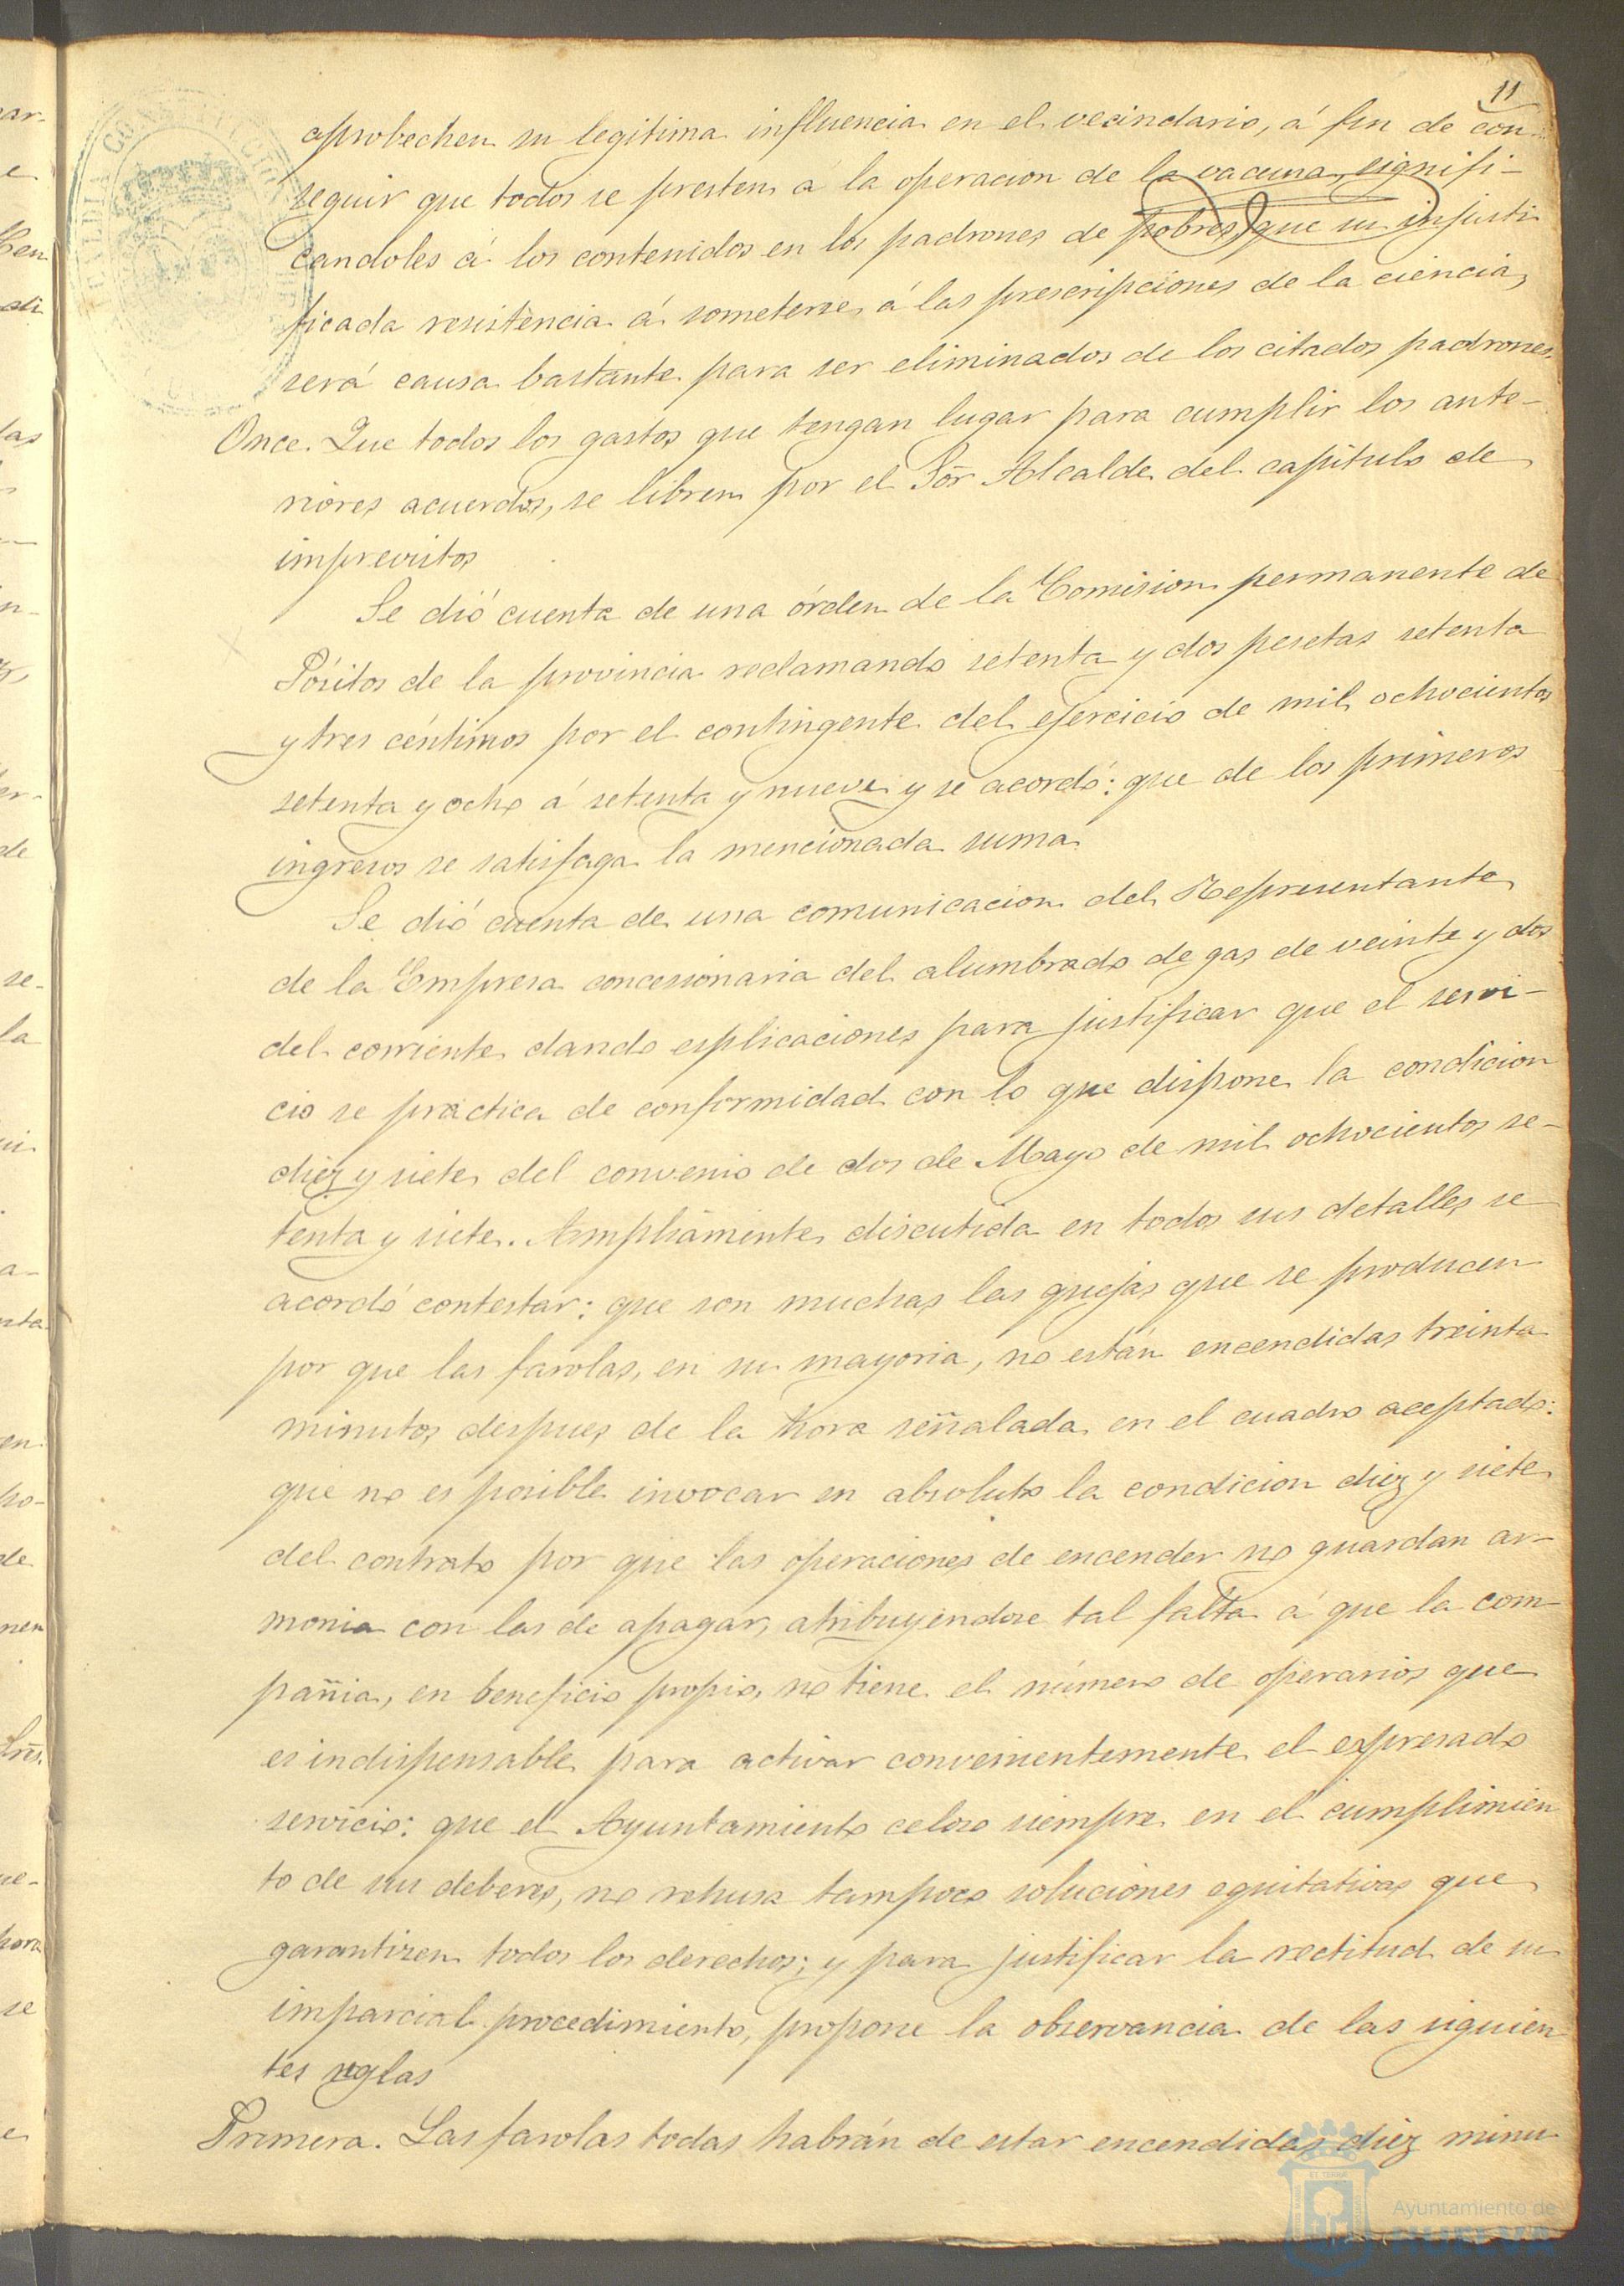 11
aprobechen su legitima influencia en el vecindario, á fin de con-
seguir que todos se presten á la operacion de la vacuna, signifi-
candoles á los contenidos en los padrones de pobres, que su injusti
ficada resistencia á someterse á las prescripciones de la ciencia,
será causa bastante para ser eliminados de los citados padrones.
Once. Que todos los gastos que tengan lugar para cumplir los ante-
riores acuerdos, se libren por el Sor Alcalde del capitulo de
imprevistos
Se dió cuenta de una órden de la Comision permanente de
Pósitos de la provincia reclamando setenta y dos pesetas setenta
y tres céntimos por el contingente del ejercicio de mil ochocientos
setenta y ocho á setenta y nueve y se acordó: que de los primeros
ingresos se satisfaga la mencionada suma.
Se dió cuenta de una comunicacion del Representante
de la Empresa concesionaria del alumbrado de gas de veinte y dos
del corriente dando esplicaciones para justificar que el servi-
cio se practica de conformidad con lo que dispone la condicion
diez y siete del convenio de dos de Mayo de mil ochocientos se-
tenta y siete. Ampliaminte discutida en todos sus detalles se
acordó contestar: que son muchas las quejas que se producen
por que las farolas, en su mayoria, no están encendidas treinta
minutos despues de la hora señalada en el cuadro aceptado:
que no es posible invocar en absoluto la condicion diez y siete
del contrato por que las operaciones de encender no guardan ar-
monia con las de apagar, atribuyendose tal falta á que la com-
pañia, en beneficio propio, no tiene el número de operarios que
es indispensable para activar convenientemente el expresado
servicio: que el Ayuntamiento celoso siempre en el cumplimien
to de sus deberes, no rehusa tampoco soluciones equitativas que
garantizen todos los derechos; y para justificar la rectitud de su
imparcial procedimiento, propone la observancia de las siguien
tes reglas
Primera. Las farolas todas habrán de estar encendidas diez minu
Ayuntamiento de
HUELVA